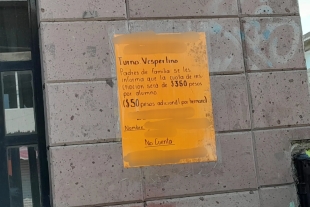 Turno Vespertino
Padres de familia se les
informa que la cuota de ins
cripción será de $380 pesos
por alumno
($50 pesos adicional por hermano)
Nombre:
No. Cuenta